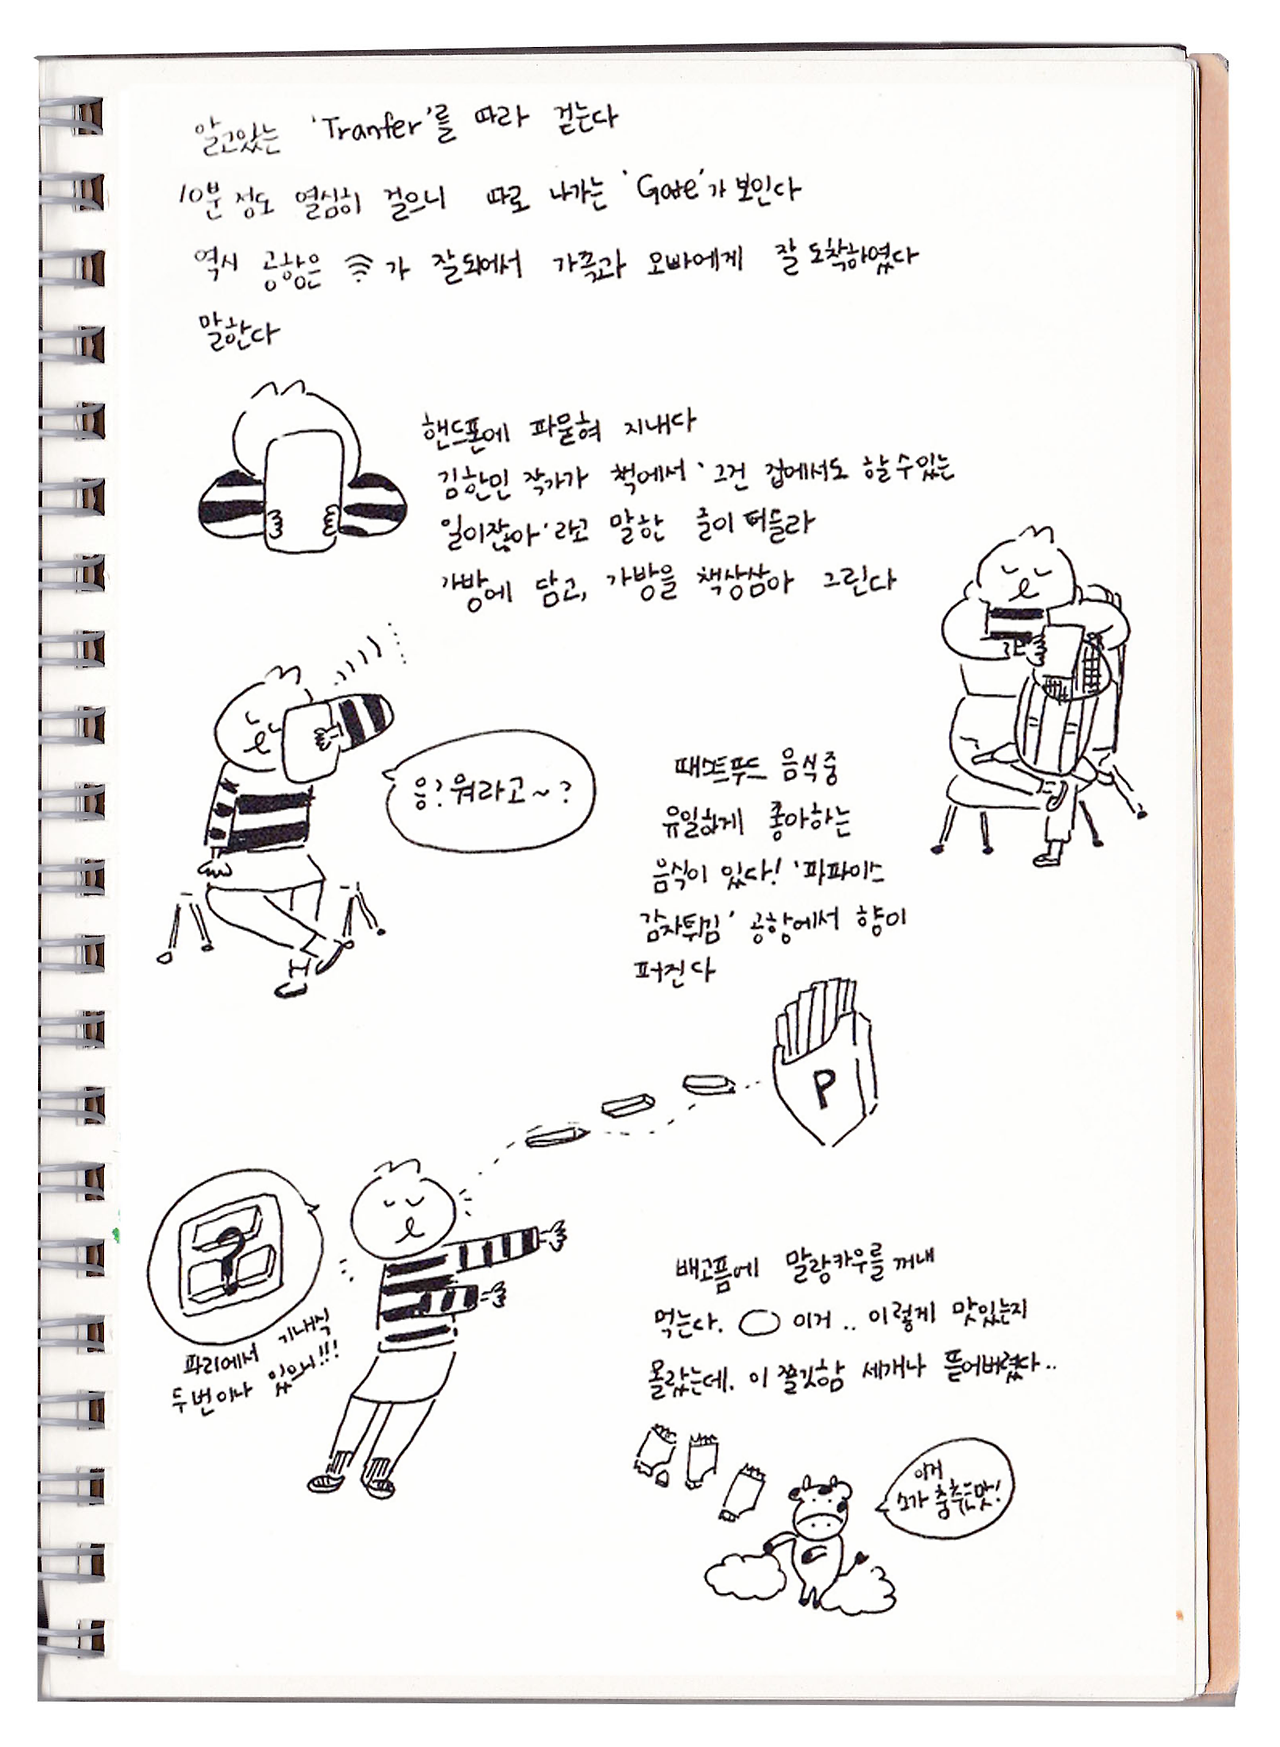 알고있는 'Tranfer'를 따라 걷는다
10분 정도 열심히 걸으니 따로 나가는 'Gate'가 보인다
역시 공항은 가 잘되어서 가족과 오빠에게 잘 도착하였다
말한다
핸드폰에 파묻혀 지내다
김한민 작가가 책에서 '그건 집에서도 할 수 있는
일이잖아'라고 말한 줄이 떠들라
가방에 담고, 가방을 책상삼아 그린다
응? 뭐라고~?
패스트푸드 음식중
유일하게 좋아하는
음식이 있다! '파파이스
감자튀김' 공항에서 향이
퍼진다
P
?
파리에서 기내식
두번이나 있으니!!!
배고픔에 말랑카우를 꺼내
먹는다. 이거.. 이렇게 맛있는지
몰랐는데. 이 쫄깃함 세개나 뜯어버렸다..
이거
소가 춤추는맛!